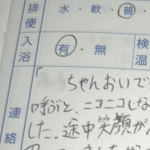 排便 水・軟・普
入浴 有・無 検温
連絡
ちゃんおいで
呼ぶと、ニコニコしな
した。途中笑顔が